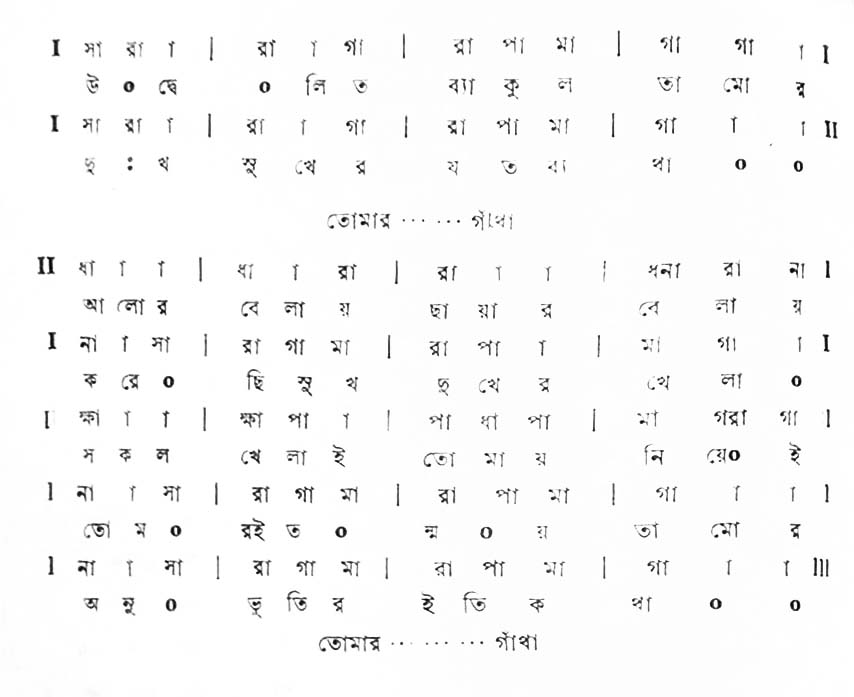 I সা রা া | রা া গা | রা পা মা | গা গা া I
উ ০ দ্বে ০ লি ত ব্যা কু ল তা মো র
I সা রা া | রা া গা | রা পা মা | গা া া II
দু ঃ খ সু খে র য ত ব্য থা ০ ০
তোমার ... ... গাঁথা
II ধা া া | ধা া রা | রা া া | ধনা রা না I
আ লো র বে লা য় ছা য়া র বে লা য়
I না া সা | রা গা মা | রা পা া | মা গা া I
ক রে ০ ছি সু খ দু খে র খে লা ০
I ক্ষা া া | ক্ষা পা া | পা ধা পা | মা গরা গা I
স ক ল খে লা ই তো মা য় নি য়ে০ ই
I না া সা | রা গা মা | রা পা মা | গা া া I
তো ম ০ রই ত ০ ন্ম ০ য় তা মো র
I না া সা | রা গা মা | রা পা মা | গা া া III
অ নু ০ ভূ তি র ই তি ক থা ০ ০
তোমার ... ... ... গাঁথা